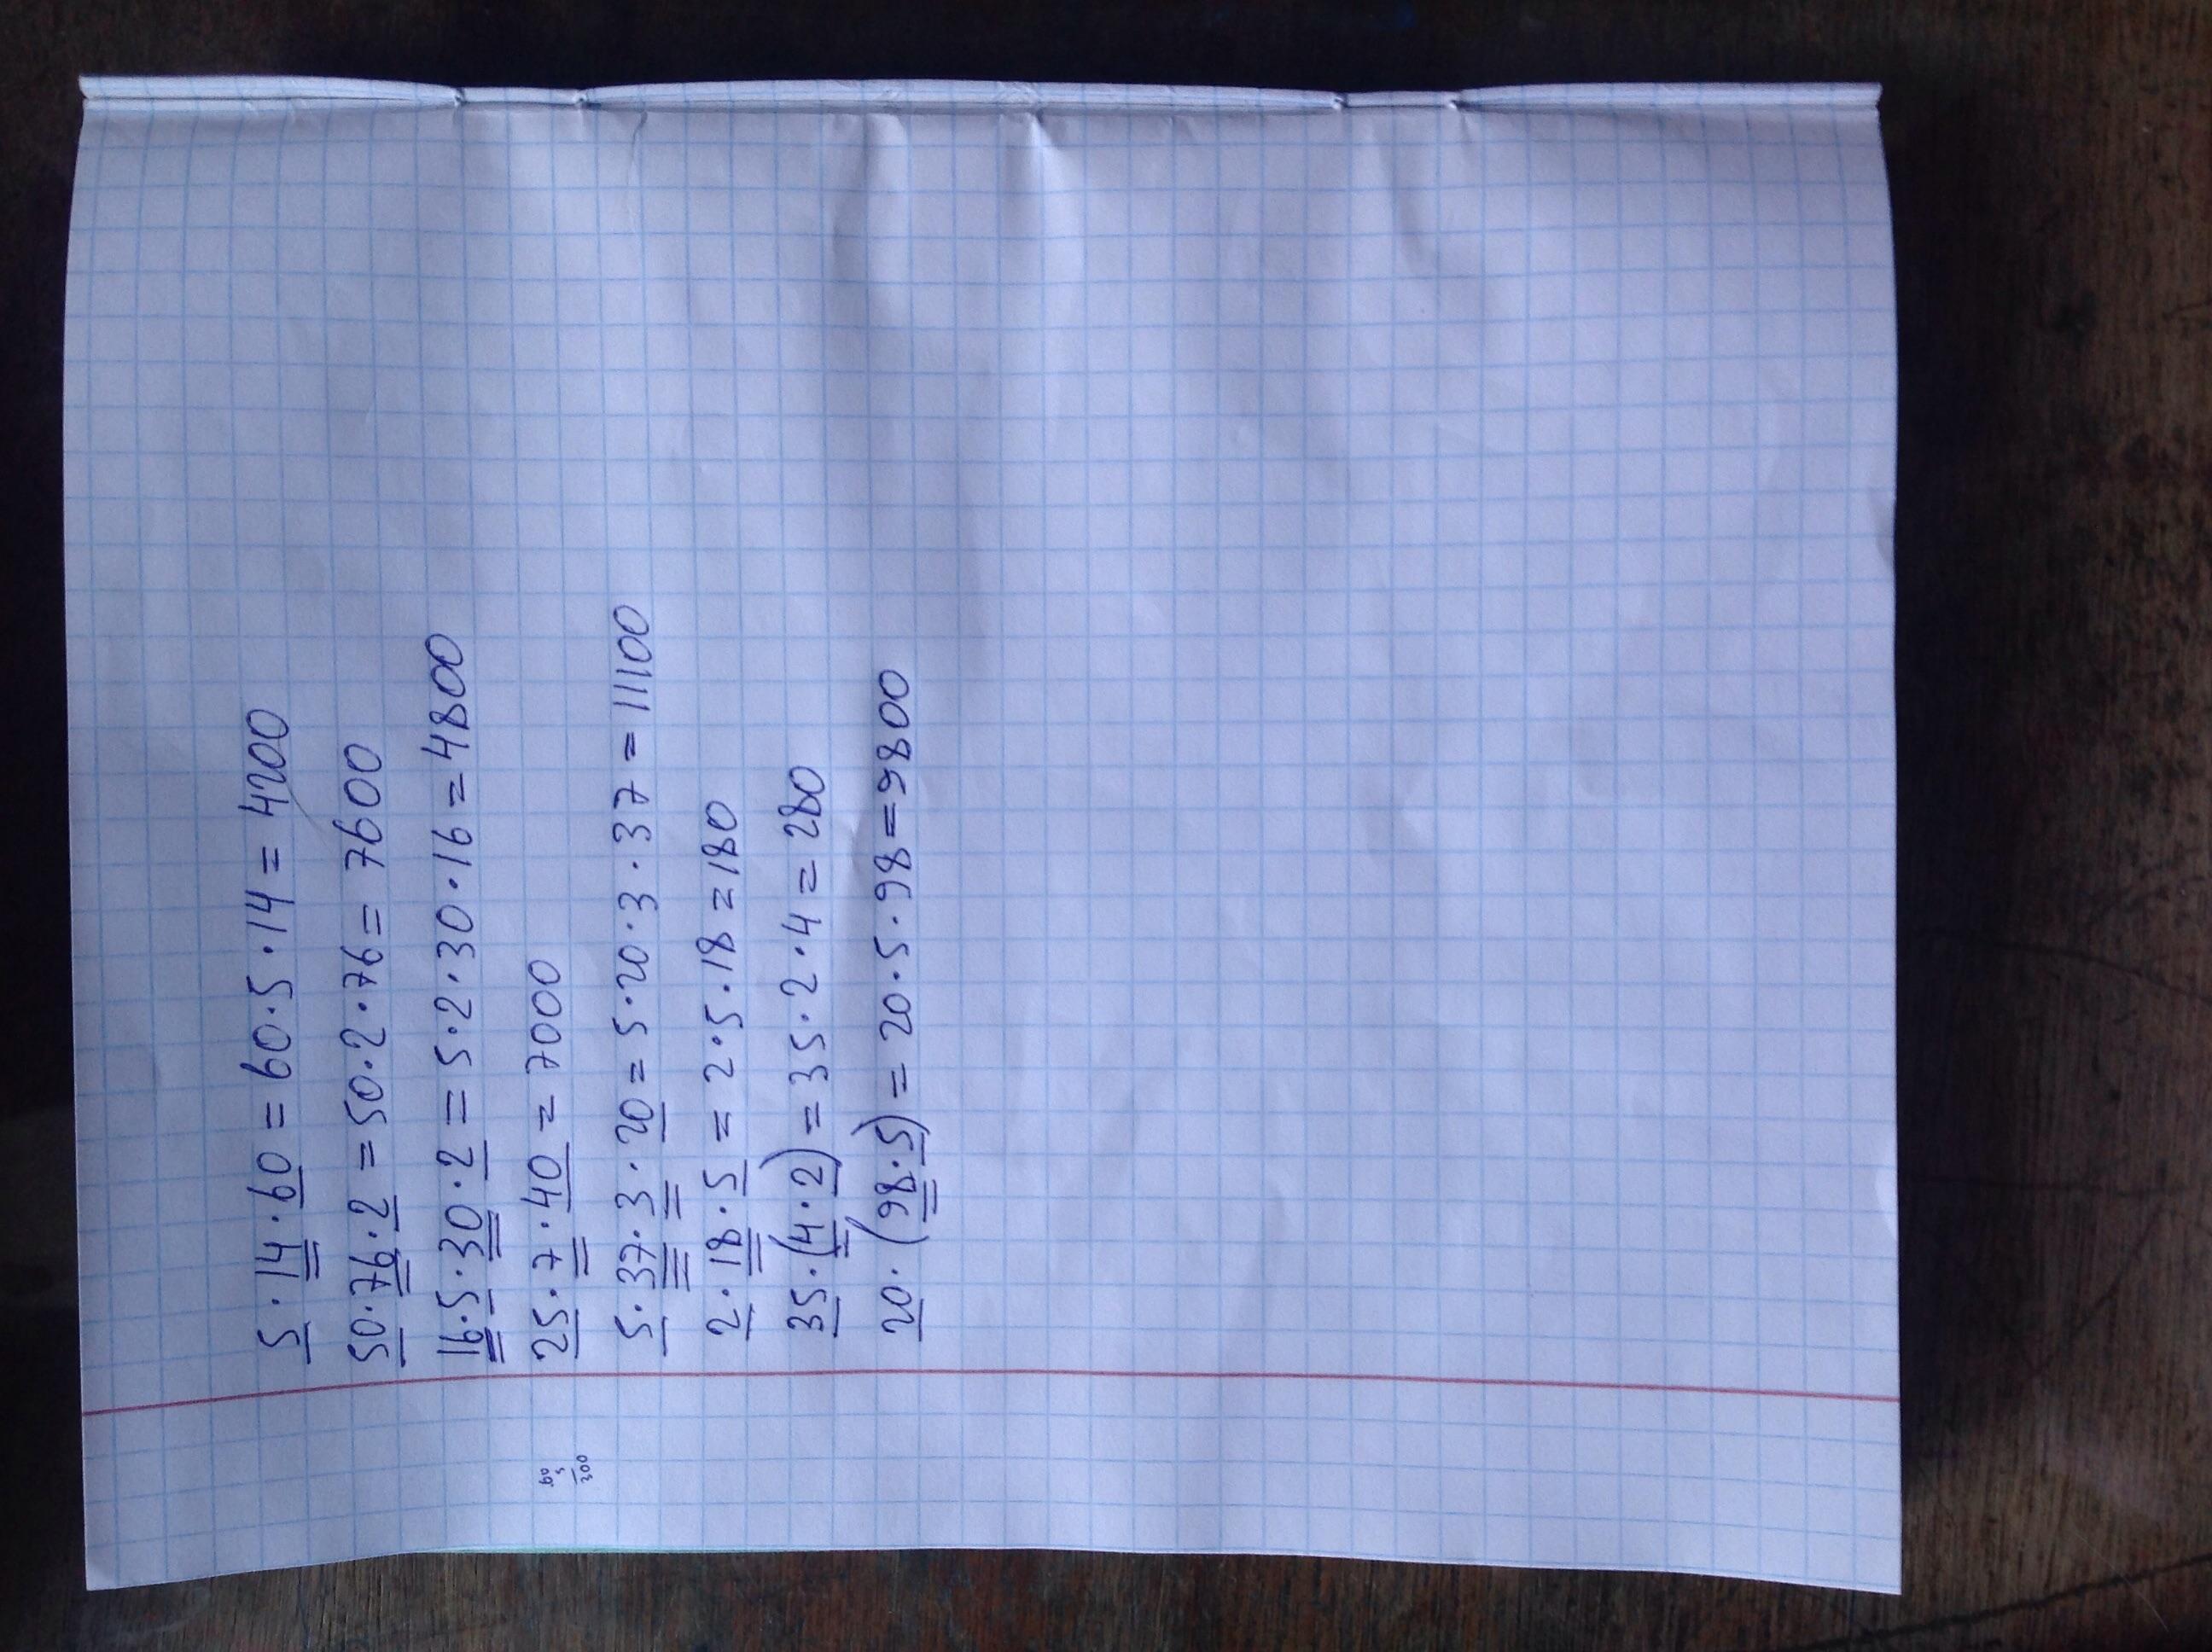 5·14·60 = 60·5·14 = 4200
50·76·2 = 50·2·76 = 7600
16·5·30·2 = 5·2·30·16 = 4800
25·7·40 = 7000
5·37·3·20 = 5·20·3·37 = 11100
2·18·5 = 2·5·18 = 180
35·(4·2) = 35·2·4 = 280
20·(98·5) = 20·5·98 = 9800
60
5
300